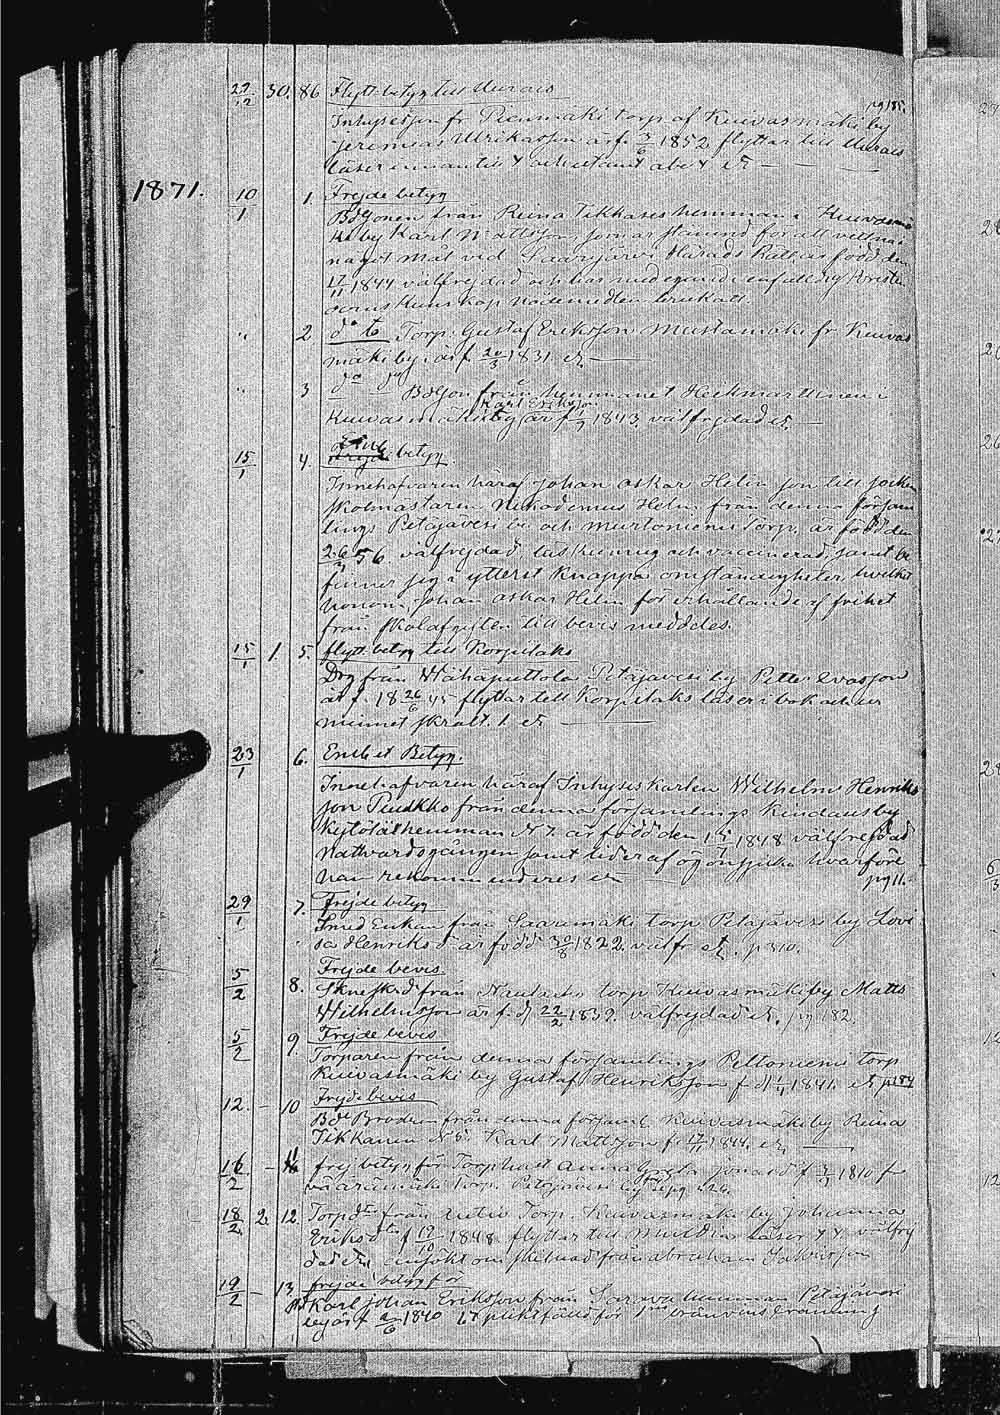 22/12 30. 86 Flytt betyg till Murais
Inhyseson fr Pienmäki torp af Kuivasmäki by pg 185.
Jeremias Ulriksson är f. 3/6 1852 flyttar till Murais
läser innantill
1871. 10/1 1. Frejde betyg
Bdsonen från Reina Tikkases hemman i Kuivasmä
ki by Karl Mattsson, som är stämd för att vittna i
något mål vid Saarijärvi Härads Rätt är född den
17/11 1844 välfrejdad och har medegande enfaldig kristen
doms kunskap nådemedlen brukat.
" 2 do to Torp. Gustaf Eriksson Mustamäki fr Kuivas
mäki by är f. 20/3 1831 etc
" 3 do do Bdson från hemmanet Heikmarttinen i
Karl Eriksson
Kuivasmäki by är f. 1843, välfrejdad etc
15/1 4. betyg.
Innehafvaren häraf Johan Oskar Helin son till socken
skolmästaren Nikodemus Helin från denna församl
lings Petäjävesi by och Murtoniemi Torp, är född den
26 56 välfrejdad, läskunnig och vaccinerad, samt be
finner sig i ytterst knappa omständigheter, hvilket
honom Johan Oskar Helin för erhållande af frihet
från skolafgiften till bevis meddeles.
15/1 1. 5. flytt betyg till Korpilaks
Drg från Mähäputtola Petäjävesi by Petter
är f. 18 26/6 45 flyttar till Korpilaks läser i bok och ur
minnet skralt. etc
23/1 6. Ensket Betyg.
Innehafvaren häraf Inhyses karlen Wilhelm Henriks
son Puukko från denna församlings Kindaus by
Kytölä hemman N 7. är född den 1848 välfrejdad
Nattvardsgången samt lider af ögonsjuka hvarföre
han rekommenderes etc pg 11.
29/1 7. Frejde betyg
Inhed Enkan från Saarimäki torp Petäjävesi by Lovi
sa Henriksd är född 30/8 1822. välfr etc. p 310.
5/2 8. Frejde bevis.
från torp Kuivasmäki by Matts
Wilhelmsson är f. d 22/2 1839. välfrejdad etc. pg 182.
5/2 9. Frejde bevis
Torparen från denna församlings Peltoniemi torp
Kuivasmäki by Gustaf Henriksson f. d 1841. etc p 184
12. – 10 Frejde bevis
Bde Brodern från denna församl. Kuivasmäki by Reina
Tikkanen N 8. Karl Mattsson f. 17/11 1844. etc
16/2 – 11 frej betyg för Torp Anna Greta f 1810 fr
Vääräinmäki Torp. Petäjävesi by
18/2 2. 12. Torpdtr från Torp. Kuivasmäki by Johanna
Eriksdtr f 19/10 1848. flyttar till läser välfrej
dad etc, ansökt om skilnad från Abraham
19/2 – 13. frejde betyg för
Karl Johan Eriksson från hemman Petäjävesi
by är f 2/6 1840 pliktfälld för 1sta brännvins bränning